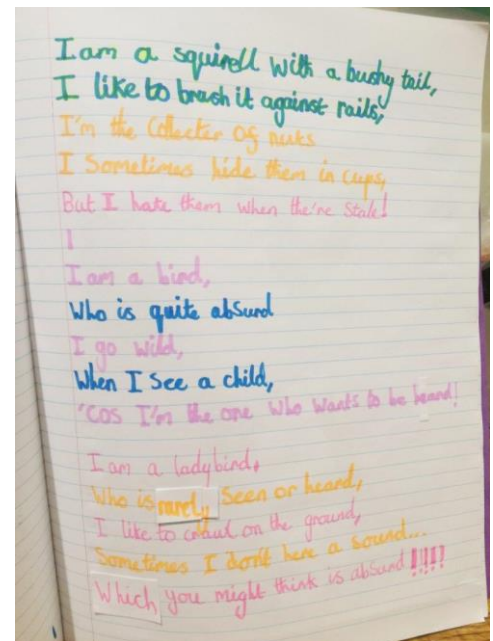 I am a squirell with a bushy tail,
I like to brush it against rails,
I'm the Collecter of nuts
I Sometimes hide them in cups,
But I hate them when the're Stale!
I
I am a bird,
Who is quite absurd
I go wild,
When I See a child,
'Cos I'm the one who wants to be heard!
I am a ladybird,
Who is rarely Seen or heard,
I like to crawl on the ground,
Sometimes I don't here a sound...
Which you might think is absurd !!!!!